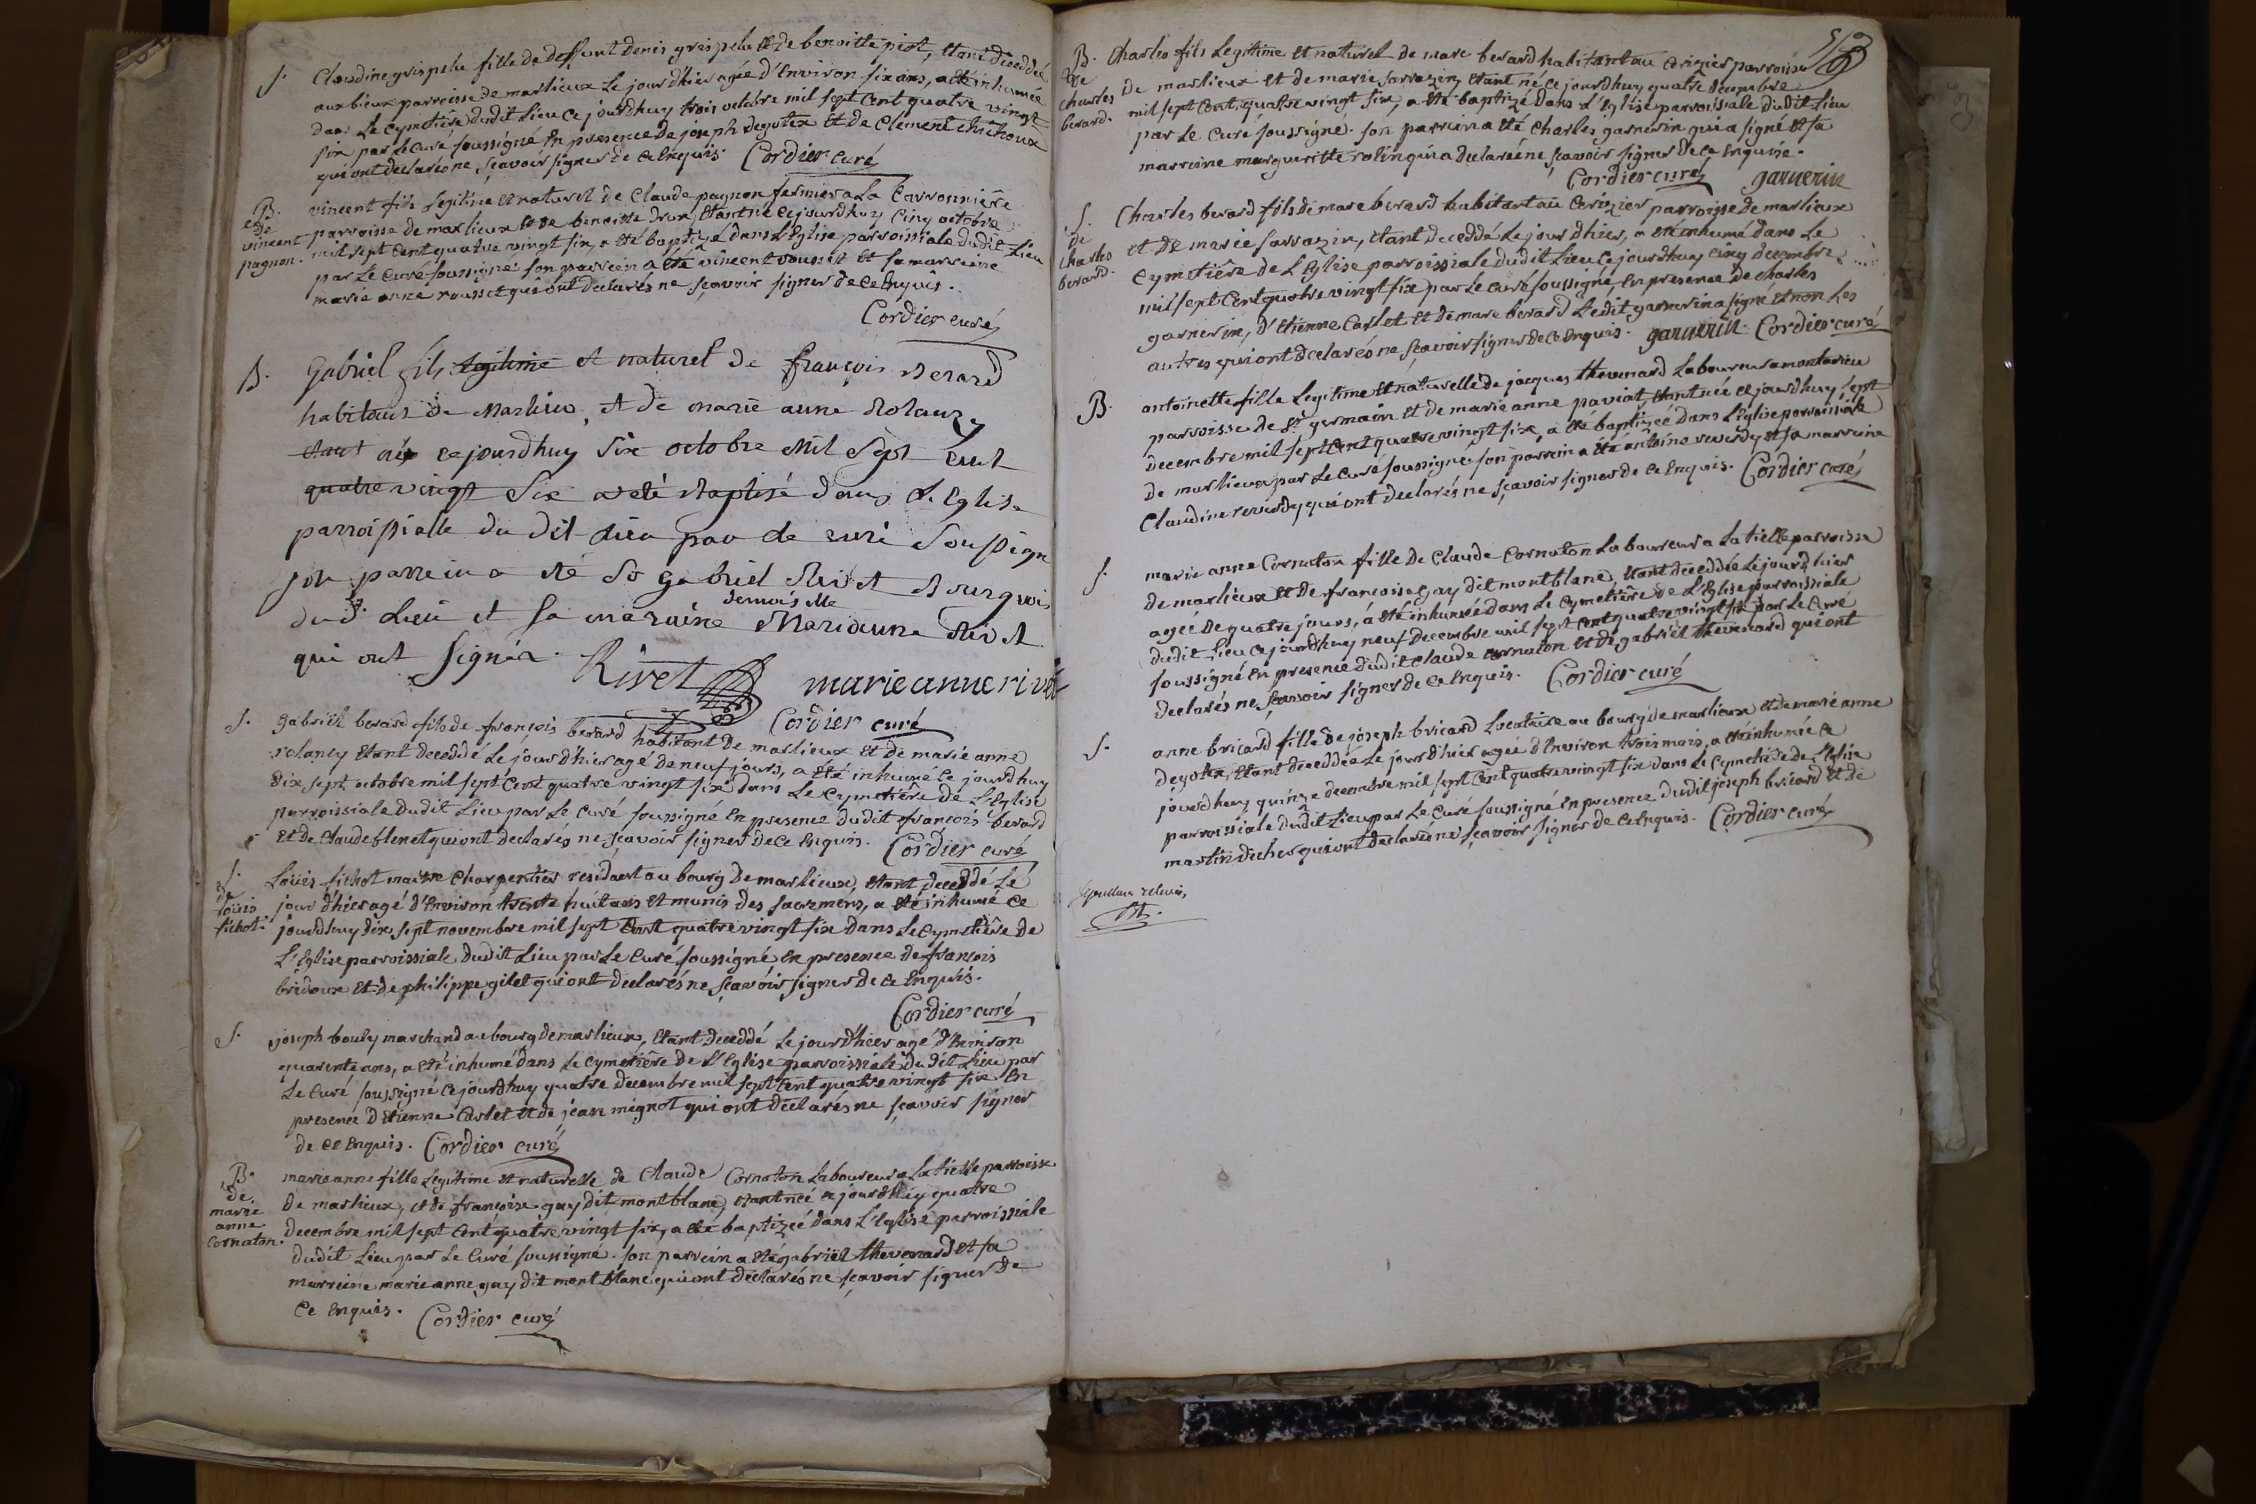 S. Claudine grispelu fille de deffunt denis grispelu et de benoitte piot, etant decedée
aux lieux parroisse de marlieux Le jour d'hier agée d'Environ six ans, a été inhumée
dans Le Cymetière dudit Lieu ce jourdhuy trois octobre mil sept cent quatre vingt
six par Le Curé soussigné En presence de joseph deguter et de Clement
qui ont declaré ne sçavoir signer de ce Enquis. Cordier curé
B. de vincent pagnon.
vincent fils Legitime et naturel de Claude pagnon fermier a La Carronnière
parroisse de marlieux et de benoitte Drux, etant né ce jourdhuy Cinq octobre
mil sept Cent quatre vingt six, a été baptizé dans L'Eglise parroissiale dudit Lieu
par Le Curé soussigné son parrein a été vincent rousset et sa marreine
marie anne rousset qui ont declarés ne sçavoir signer de ce Enquis.
Cordier curé
B. Gabriel fils legitime et naturel de françois Berard
habitant de Marlieu, et de marie anne Rolanzy
etant né ce jourdhuy Six octobre Mil Sept Cent
quatre vingt Six a eté Baptisé dans L'Eglise
parroissialle du dit Lieu par le curé Soussigné
son parrein a été Sr Gabriel Rivet Bourgeois
dud. Lieu et Sa maraine demoiselle Marianne Rivet
qui ont Signéz. Rivet marie anne rivet
Cordier curé
S. gabriel berard fils de françois berard habitant de marlieux et de marie anne
rolancy etant decedé Le jour d'hier agé de neuf jours, a été inhumé Ce jourdhuy
dix sept octobre mil sept Cent quatre vingt six dans Le Cymetière de L'Eglise
parroissiale dudit Lieu par Le Curé soussigné En presence dudit françois berard
et de Claude flenet qui ont declarés ne sçavoir signer de ce Enquis. Cordier curé
S. de Loüis fichot.
Loüis fichot maitre Charpentier residant au bourg de marlieux, etant decedé Le
jour d'hier agé d'Environ trente huit ans et munis des sacremens, a été inhumé Ce
jourdhuy dix sept novembre mil sept Cent quatre vingt six dans Le Cymetière de
L'Eglise parroissiale dudit Lieu par Le Curé soussigné En presence de françois
bridoux et de philippe gilet qui ont declarés ne sçavoir signer de ce Enquis.
Cordier curé
S. joseph bouly marchand au bourg de marlieux, etant decedé Le jour d'hier agé d'Environ
quarente ans, a été inhumé dans Le Cymetière de L'Eglise parroissiale dudit Lieu par
Le Curé soussigné Ce jourdhuy quatre decembre mil sept Cent quatre vingt six En
presence d'Etienne Carlet et de jean mignot qui ont declarés ne sçavoir signer
de ce Enquis. Cordier curé
B. de marie anne Cornaton.
marie anne fille Legitime et naturelle de Claude Cornaton Laboureur a La tielle parroisse
de marlieux, et de françoise gay dit montblanc, etant née ce jourdhuy quatre
decembre mil sept Cent quatre vingt six, a été baptizée dans L'Eglise parroissiale
dudit Lieu par Le Curé soussigné. son parrein a été gabriel thevenard et sa
marreine marie anne gay dit mont blanc qui ont declarés ne sçavoir signer de
Ce Enquis. Cordier curé
B. de Charles berard.
Charles fils Legitime et naturel de marc berard habitant au Cerizier parroisse
de marlieux et de marie sarrazin, etant né ce jourdhuy quatre decembre
mil sept Cent quatre vingt six, a été baptizé dans L'Eglise parroissiale dudit Lieu
par Le Curé soussigné. son parrein a été Charles garnerin qui a signé et sa
marreine margueritte rolin qui a declarée ne sçavoir signer de ce Enquise.
Cordier curé garnerin
S. de Charles berard.
Charles berard fils de marc berard habitant au Cerizier parroisse de marlieux
et de marie sarrazin, etant decedé Le jour d'hier, a été inhumé dans Le
Cymetière de L'Eglise parroissiale dudit Lieu Ce jourdhuy Cinq decembre
mil sept Cent quatre vingt six par Le Curé soussigné En presence de Charles
garnerin, d'Etienne Carlet et de marc berard Ledit garnerin a signé et non Les
autres qui ont declarés ne sçavoir signer de ce Enquis. garnerin. Cordier curé
B. antoinette fille Legitime et naturelle de jacques thevenard Laboureur a montarieu
parroisse de St germain et de marie anne paviat, etant née ce jourdhuy sept
decembre mil sept Cent quatre vingt six, a été baptizée dans L'Eglise parroissiale
de marlieux par Le Curé soussigné son parrein a été antoine reverdy et sa marreine
Claudine reverdy qui ont declarés ne sçavoir signer de ce Enquis. Cordier curé
S. marie anne Cornaton fille de Claude Cornaton Laboureur a La tielle parroisse
de marlieux et de françoise gay dit montblanc, etant decedée Le jour d'hier
agée de quatre jours, a été inhumée dans Le Cymetière de L'Eglise parroissiale
dudit Lieu ce jourdhuy neuf decembre mil sept Cent quatre vingt six par Le Curé
soussigné En presence dudit Claude Cornaton et de gabriel thevenard qui ont
declarés ne sçavoir signer de ce Enquis. Cordier curé
S. anne bricard fille de joseph bricard Locataire au bourg de marlieux et de marie anne
degoter, etant decedée Le jour d'hier agée d'Environ trois mois, a été inhumée Ce
jourdhuy quinze decembre mil sept Cent quatre vingt six dans Le Cymetière de L'Eglise
parroissiale dudit Lieu par Le Curé soussigné En presence dudit joseph bricard et de
martin qui ont declarés ne sçavoir signer de ce Enquis. Cordier curé